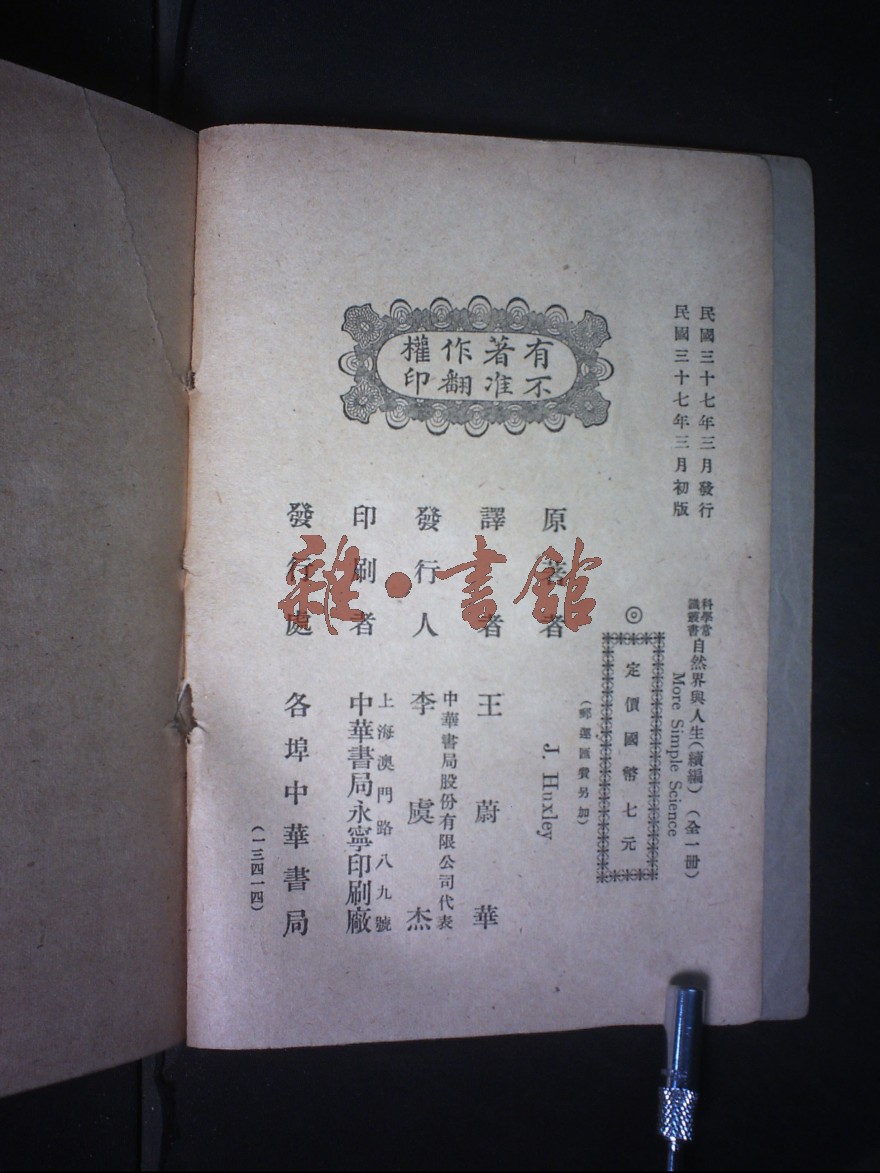 民國三十七年三月發行
民國三十七年三月初版
科學常識叢書 自然界與人生(續編)(全一冊)
More Simple Science
◎定價國幣七元
(郵運匯費另加)
有著作權
不准翻印
原著者 J. Huxley
譯者 王蔚華
發行人 李虞杰
中華書局股份有限公司代表
印刷者 中華書局永寧印刷廠
上海澳門路八九號
發行處 各埠中華書局
(一三四一四)
雜·書館